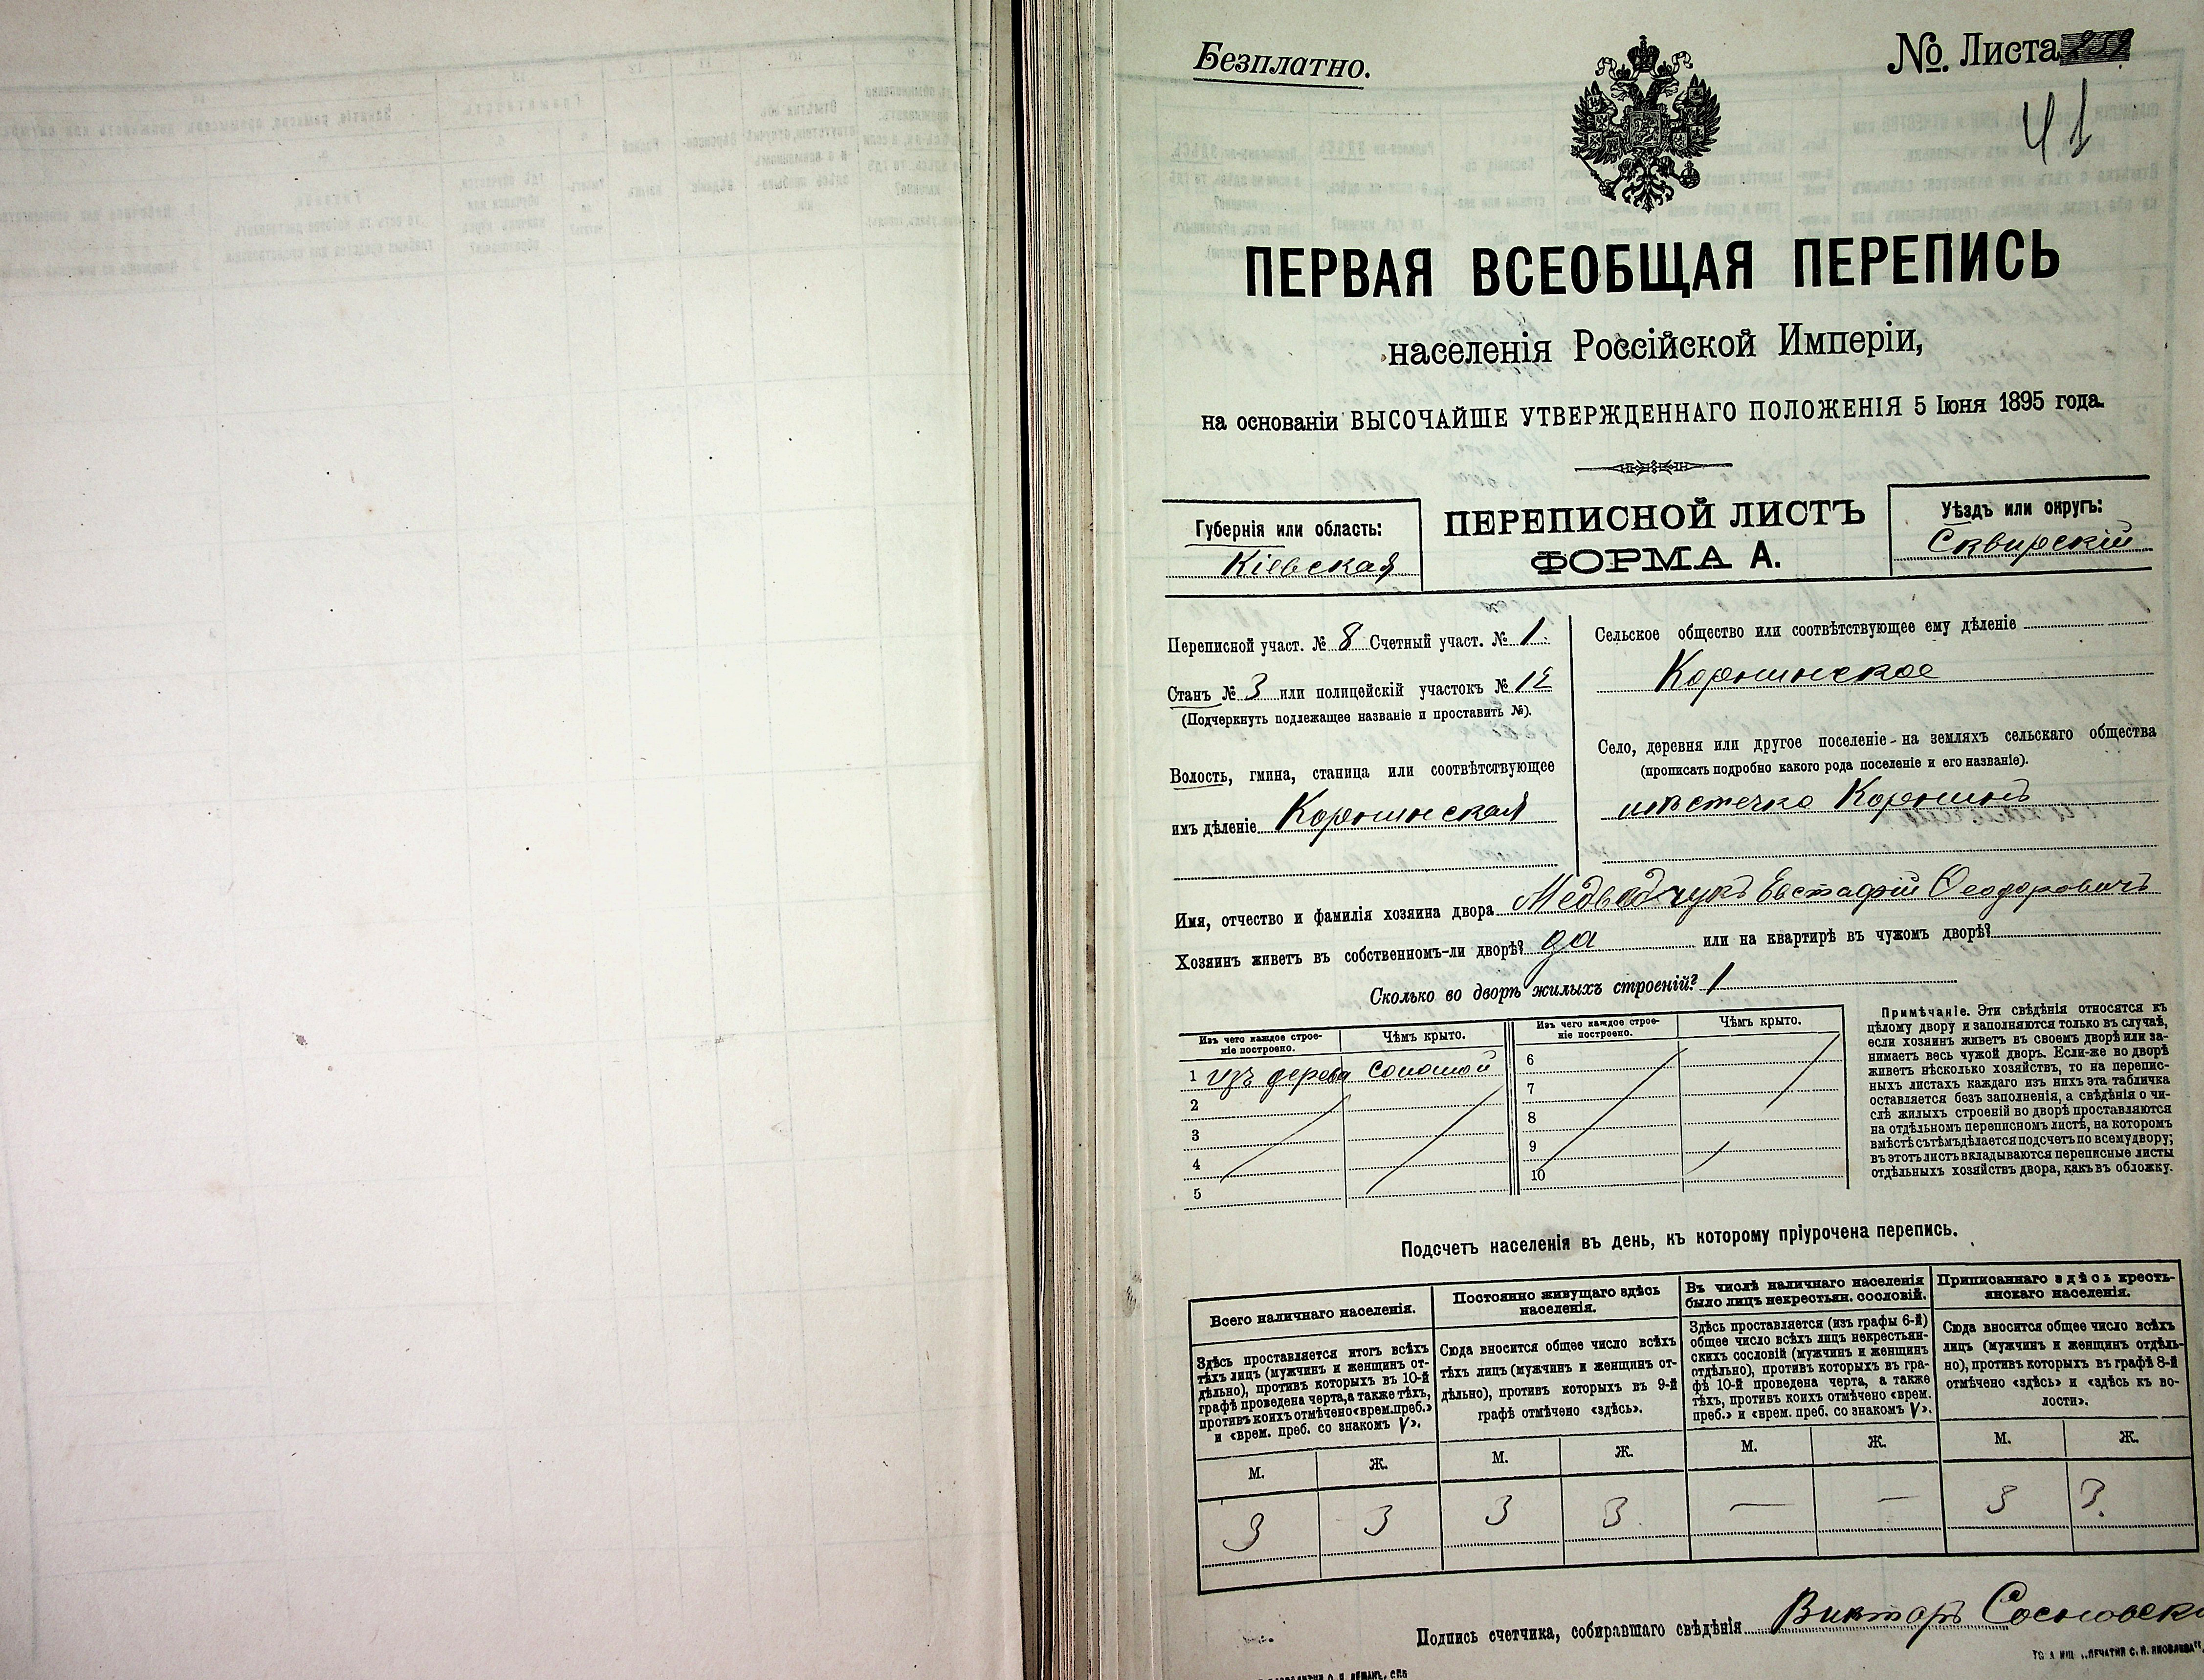 Безплатно.
№. Листа 232
41
ПЕРВАЯ ВСЕОБЩАЯ ПЕРЕПИСЬ
населенія Россійской Имперіи,
на основаніи ВЫСОЧАЙШЕ УТВЕРЖДЕННАГО ПОЛОЖЕНІЯ 5 Іюня 1895 года.
Губернія или область:
Кіевская
ПЕРЕПИСНОЙ ЛИСТЪ
ФОРМА А.
Уѣздъ или округъ:
Сквирскій
Переписной участ. № 8 Счетный участ. № 1
Станъ № 3 или полицейскій участокъ № 12
(Подчеркнуть подлежащее названіе и проставить №).
Волость, гмина, станица или соотвѣтствующее
имъ дѣленіе Корнинская
Сельское общество или соотвѣтствующее ему дѣленіе
Корнинское
Село, деревня или другое поселеніе на земляхъ сельскаго общества
(прописать подробно какого рода поселеніе и его названіе).
мѣстечко Корнинъ
Имя, отчество и фамилія хозяина двора Медведчукъ Евстафій Ѳеодоровичъ
Хозяинъ живетъ въ собственномъ-ли дворѣ? да или на квартирѣ въ чужомъ дворѣ?
Сколько во дворѣ жилыхъ строеній? 1
Изъ чего каждое строе-
ніе построено.
Чѣмъ крыто.
1 изъ дерева соломой
2
3
4
5
Изъ чего каждое строе-
ніе построено.
Чѣмъ крыто.
6
7
8
9
10
Примѣчаніе. Эти свѣдѣнія относятся къ
цѣлому двору и заполняются только въ случаѣ,
если хозяинъ живетъ въ своемъ дворѣ или за-
нимаетъ весь чужой дворъ. Если-же во дворѣ
живетъ нѣсколько хозяйствъ, то на перепис-
ныхъ листахъ каждаго изъ нихъ эта табличка
оставляется безъ заполненія, а свѣдѣнія о чи-
слѣ жилыхъ строеній во дворѣ проставляются
на отдѣльномъ переписномъ листѣ, на которомъ
вмѣстѣ съ тѣмъ дѣлается подсчетъ по всему двору;
въ этотъ листъ вкладываются переписные листы
отдѣльныхъ хозяйствъ двора, какъ въ обложку.
Подсчетъ населенія въ день, къ которому пріурочена перепись.
Всего наличнаго населенія.
Здѣсь проставляется итогъ всѣхъ
тѣхъ лицъ (мужчинъ и женщинъ от-
дѣльно), противъ которыхъ въ 10-й
графѣ проведена черта, а также тѣхъ,
противъ коихъ отмѣчено «врем. преб.»
и «врем. преб. со знакомъ V».
М. Ж.
3 3
Постоянно живущаго здѣсь
населенія.
Сюда вносится общее число всѣхъ
тѣхъ лицъ (мужчинъ и женщинъ от-
дѣльно), противъ которыхъ въ 9-й
графѣ отмѣчено «здѣсь».
М. Ж.
3 3
Въ числѣ наличнаго населенія
было лицъ некрестьян. сословій.
Здѣсь проставляется (изъ графы 6-й)
общее число всѣхъ лицъ некрестьян-
скихъ сословій (мужчинъ и женщинъ
отдѣльно), противъ которыхъ въ гра-
фѣ 10-й проведена черта, а также
тѣхъ, противъ коихъ отмѣчено «врем.
преб.» и «врем. преб. со знакомъ V».
М. Ж.
— —
Приписаннаго здѣсь кресть-
янскаго населенія.
Сюда вносится общее число всѣхъ
лицъ (мужчинъ и женщинъ отдѣль-
но), противъ которыхъ въ графѣ 8-й
отмѣчено «здѣсь» и «здѣсь къ во-
лости».
М. Ж.
3 3.
Подпись счетчика, собиравшаго свѣдѣнія Викторъ Сосновски